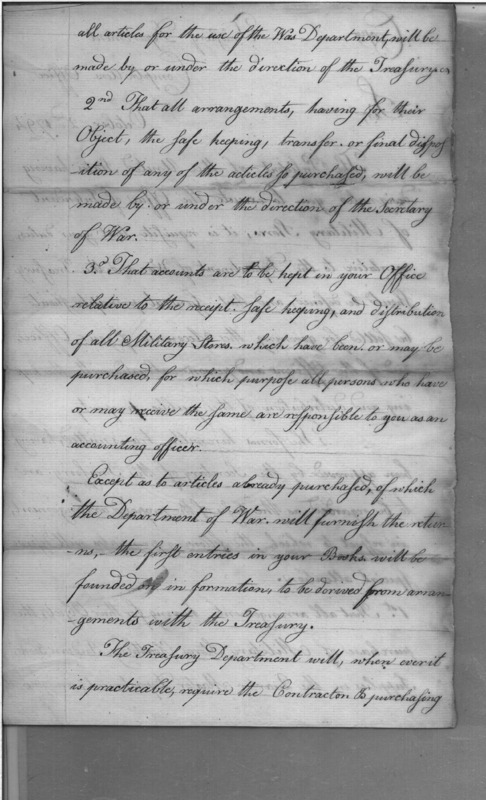 all articles for the use of the War Department, will be
made by or under the direction of the Treasury
2nd That all arrangements, having for their
Object, the safe keeping, transfer. or final dispos
ition of any of the acticles so purchased, will be
made by. or under the direction of the Secretary
of War.
3d That accounts are to be kept in your Office
relative to the receipt. safe keping, and distribution
of all Military Stores. which have been. or may be
purchased, for which purpose all persons who have
or may receive the same are responsible to you as an
accounting officer.
Except as to articles already purchased, of which
the Department of War. will furnish the retur-
-ns,- the first entries in your Books. will be
founded on in formation, to be derived from arran-
-gements with the Treasury.
The Treasury Department will, when ever it
is practicable, require the Contractor purchasing